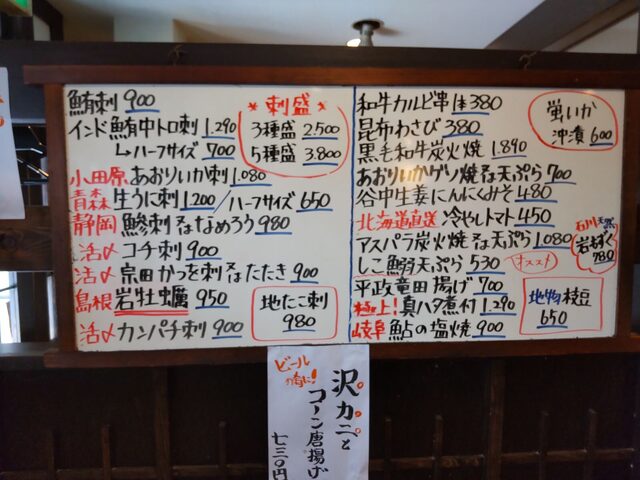 鮪刺 900
インド鮪中トロ刺 1.290
↳ハーフサイズ 700
＊刺盛＊
3種盛 2.500
5種盛 3.800
小田原 あおりいか刺 1.080
青森 生うに刺 1.200/ハーフサイズ 650
静岡 鯵刺 又は なめろう 980
活〆 コチ刺 900
活〆 宗田かつを刺 又は たたき 900
島根 岩牡蠣 950
活〆 カンパチ刺 900
地たこ刺
980
和牛カルビ串 1本 380
昆布わさび 380
黒毛和牛炭火焼 1.890
あおりいかゲソ焼 又は 天ぷら 700
谷中生姜にんにくみそ 480
北海道直送 冷やしトマト 450
アスパラ炭火焼 又は 天ぷら 1.080
しこ鰯天ぷら 530 オススメ
平政竜田揚げ 700
極上!真ハタ煮付 1.290
岐阜 鮎の塩焼 900
蛍いか
沖漬 600
石川 天然
岩もずく
780
地物枝豆
650
ビールの為に!
沢カニと
コーン唐揚げ
七三〇円